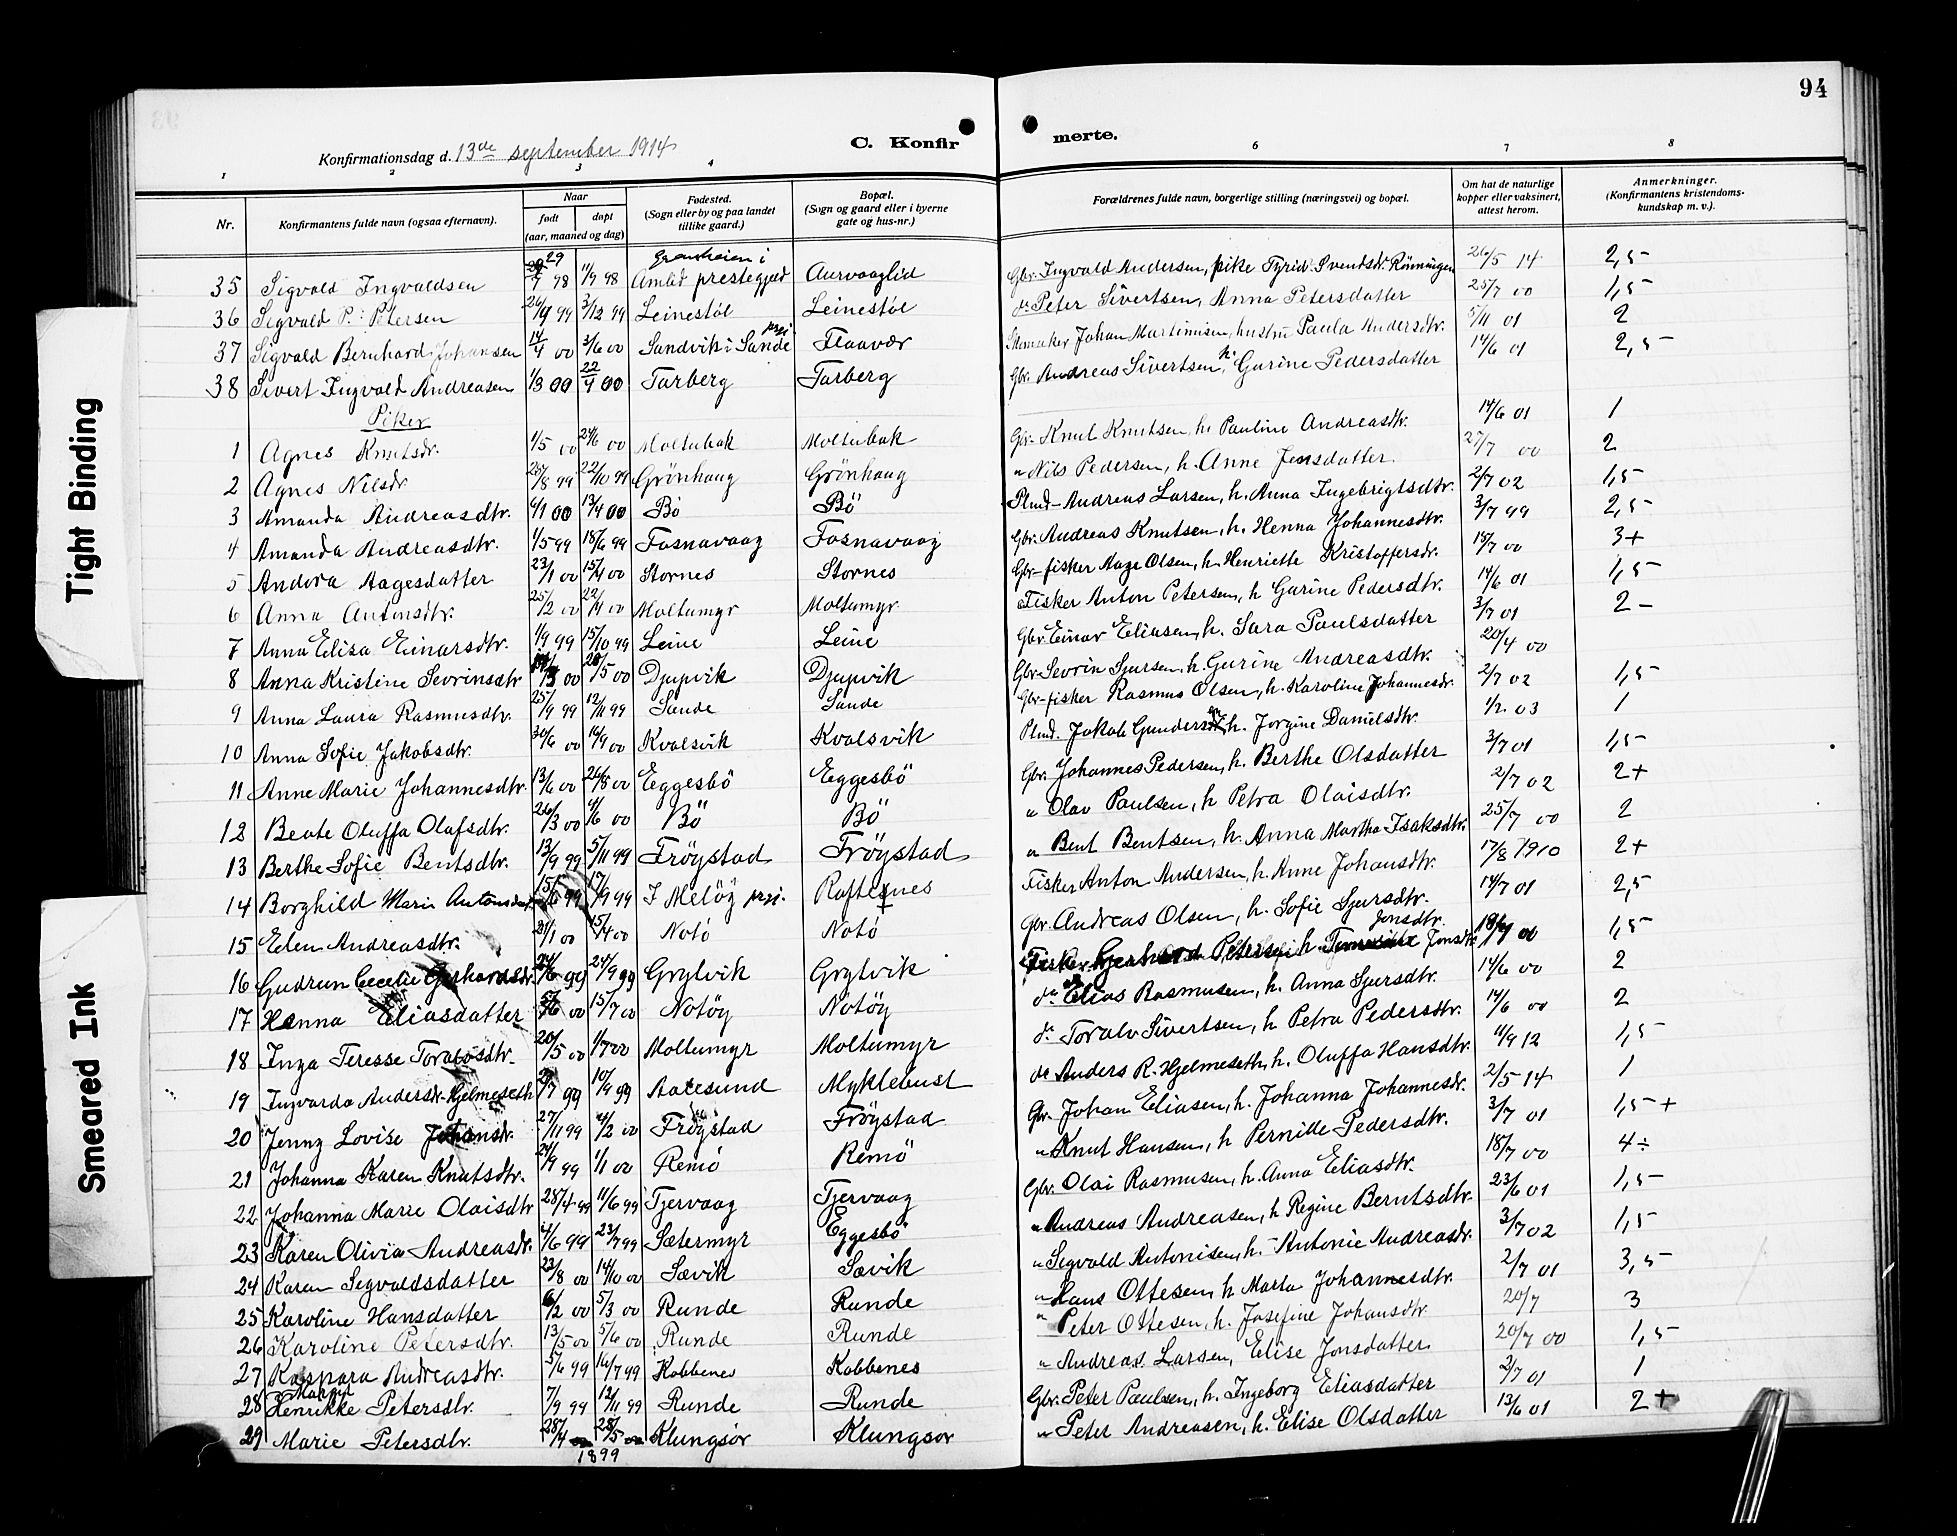 94
Konfirmationsdag d. 13de september 1914
C. Konfirmerte.
1 2 3 4 6 7 8
Nr.
Konfirmantens fulde navn (ogsaa efternavn).
Naar
født døpt
(aar, maaned og dag)
Fødested.
(Sogn eller by og paa landet
tillike gaard.)
Bopæl.
(Sogn og gaard eller i byerne
gate og hus-nr.)
Forældrenes fulde navn, borgerlige stilling (næringsvei) og bopæl.
Om hat de naturlige
kopper eller vaksinert,
attest herom.
Anmerkninger.
(Konfirmantens kristendoms-
kundskap m. v.).
35 Sigvald Ingvaldsen 11/9 98 i Amlid prestegjeld Aurvaaglid Gbr. Ingvald Andersen, pike Tyrid Svendsdr. Rönningen 26/5 14 2,5-
36 Sigvald P. Petersen 3/12 99 Leinestöl Leinestöl do Peter Sivertsen, Anna Petersdatter 25/7 00 1,5-
37 Sigvald Bernhard Johansen 14/4 00 3/6 00 Sandvik i Sande prgj. Flaavær Johan Martinusen, hustru Paula Andersdtr. 5/11 01 2
38 Sivert Ingvald Andreasen 1/3 00 22/4 00 Tarberg Tarberg Gbr. Andreas Sivertsen, h. Gurine Pedersdatter 14/6 01 2,5-
Piker
1 Agnes Knutsdr. 1/5 00 24/6 00 Moltubak Moltubak Gbr. Knut Knutsen, h. Pauline Andreasdtr. 14/6 01 1
2 Agnes Nilsdr 28/8 99 22/10 99 Grönhaug Grönhaug " Nils Pedersen, h. Anne Jensdatter 27/7 00 2
3 Amanda Andreasdtr. 6/1 00 13/4 00 Bö Bö Plmd- Andreas Larsen, h. Anna Ingebrigtsdtr. 2/7 02 1,5-
4 Amanda Andreasdtr. 1/5 99 18/6 99 Fosnavaag Fosnavaag Gbr. Andreas Knutsen, h. Henna Johannesdtr. 3/7 99 2,5-
5 Andora Aagesdatter 23/1 00 15/4 00 Stornes Stornes Gbr-fisker Aage Olsen, h. Henriette Kristoffersdr. 18/7 00 3+
6 Anna Antonsdtr. 25/2 00 22/4 00 Moltumyr Moltumyr Fisker Anton Petersen, h Gurine Pedersdtr. 14/6 01 1,5-
7 Anna Elisa Einarsdtr. 1/9 99 15/10 99 Leine Leine Gbr. Einar Eliasen, h. Sara Paulsdatter 3/7 01 2-
8 Anna Kristine Sevrinsdtr 00 20/5 00 Djupvik Djupvik Gbr Sevrin Sjursen, h. Gurine Andreasdtr. 20/4 00
9 Anna Laura Rasmusdtr. 25/9 99 12/11 99 Sande Sande Gbr-fisker Rasmus Olsen, h. Karoline Johannesdr. 2/7 02 1,5-
10 Anna Sofie Jakobsdtr. 30/6 00 16/9 00 Kvalsvik Kvalsvik Plmd. Jakob Gundersen h. Jorgine Danielsdtr. 1/2. 03 1
11 Anne Marie Johannesdtr. 13/6 00 26/8 00 Eggesbö Eggesbö Gbr. Johannes Pedersen, h. Berthe Olsdatter 3/7 01 1,5-
12 Beate Oluffa Olafsdtr. 26/3 00 4/6 00 Bö Bö " Olav Paulsen, h Petra Olaisdtr. 2/7 02 2+
13 Berthe Sofie Bentsdtr. 13/9 99 5/11 99 Fröystad Fröystad " Bent Bentsen, h. Anna Martha Isaksdtr. 25/7 00 2
14 Borghild Marie Antonsdatr 15/6 99 17/9 99 I Melöy prgj. Raftesnes Fisker Anton Andersen, h. Anne Johansdtr. 17/8 1910 2+
15 Elen Andreasdtr. 21/1 00 15/4 00 Notö Notö Gbr. Andreas Olsen, h. Sofie Sjursdtr. 14/7 01 2,5
16 Gudrun Cecelie Gerhardsdr. 24/6 99 24/9 99 Grytvik Grytvik Fisker Gerhard Petersen h. Jonsdtr. 18/7 00 1,5-
17 Henna Eliasdatter 5/6 00 15/7 00 Notöy Notöy do Elias Rasmusen, h. Anna Sjursdtr. 14/6 00 2
18 Inga Teresse Toralvsdtr. 20/5 00 1/7 00 Moltumyr Moltumyr do Toralv Sivertsen, h Petra Pedersdtr. 14/6 00 2
19 Ingvarda Andersdr. Hjelmeseth 99 10/9 99 Aalesund Myklebust do Anders R. Hjelmeseth, h. Oluffa Hansdtr. 11/9 12 1,5-
20 Jenny Lovise Johansdr. 27/11 99 4/2 00 Fröystad Fröystad Gbr. Johan Eliasen, h. Johanna Johannesdr. 2/5 14 1
21 Johanna Karen Knutsdtr. 24/9 99 1/1 00 Remö Remö " Knut Hansen, h Pernille Pedersdtr. 3/7 01 1,5-+
22 Johanna Marie Olaisdtr 28/4 99 11/6 99 Tjervaag Tjervaag Gbr. Olai Rasmusen, h. Anna Eliasdtr. 18/7 00 4÷
23 Karen Olivia Andreasdr. 4/6 99 23/7 99 Sætermyr Eggesbö " Andreas Andreasen, h Regine Berntsdtr. 23/6 01 1,5-
24 Karen Sigvaldsdatter 23/8 00 14/10 00 Sævik Sævik " Sigvald Antonisen, h. Antonie Andreasdr. 3/7 02 1,5-
25 Karoline Hansdatter 6/2 00 5/3 00 Runde Runde " Hans Ottesen, h Marta Johannesdtr. 2/7 01 3,5-
26 Karoline Petersdtr. 13/5 00 5/6 00 Runde Runde " Peter Ottesen, h. Josefine Johansdtr. 20/7 3
27 Kaspara Andreasdtr. 5/6 99 16/7 99 Kobbenes Kobbenes " Andreas Larsen, Elise Jonsdatter 20/7 00 1,5-
28 Henrikke Petersdtr. 7/9 99 12/11 99 Runde Runde Gbr. Peter Paulsen, h. Ingeborg Eliasdatter 2/7 01 1
29 Marie Petersdtr. 28/4 28/5 1899 Klungsör Klungsör " Peter Andreasen, h. Elise Olsdatter 13/6 01 2+
Tight Binding
Smeared Ink